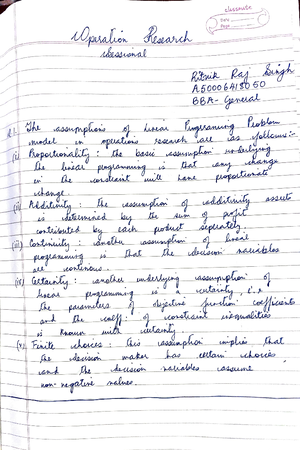 classmate
Date
Page
Operation Research
Sessional
Ritwik Raj Singh
A50006418050
BBA- General
The assumptions of Linear Programing Problem
model in operations research are as follows:-
(i) Proportionality: the basic assumption underlying
the linear programming is that any change
in the constraint will have proportionate
change.
(ii) Additivity: the assumption of additivity asserts
is determined by the sum of profit
contributed by each product seprately.
(iii) Continuity: another assumption of linear
programming is that the decision variables
are continous.
(iv) Certainty: another underlying assumption of
linear programming is a certainty, i.e
the parameters of objective function coefficients
and the coeff. of constraint inequalities
is known with certainty.
(v) Finite choices: this assumption implies that
the decision maker has certain choices
and the decision variables assume
non-negative values.